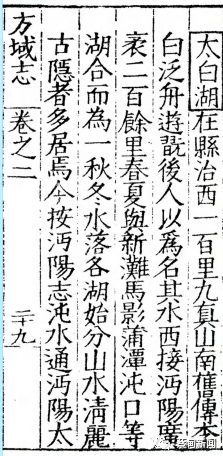 太白湖在縣治西一百里九真山南舊傳李
白泛舟遊翫後人以爲名其水西接沔陽廣
袤二百餘里春夏與新灘馬影蒲潭沌口等
湖合而為一秋冬水落各湖始分山水清麗
古隱者多居焉今按沔陽志沌水通沔陽太
方域志 卷之二 二十九